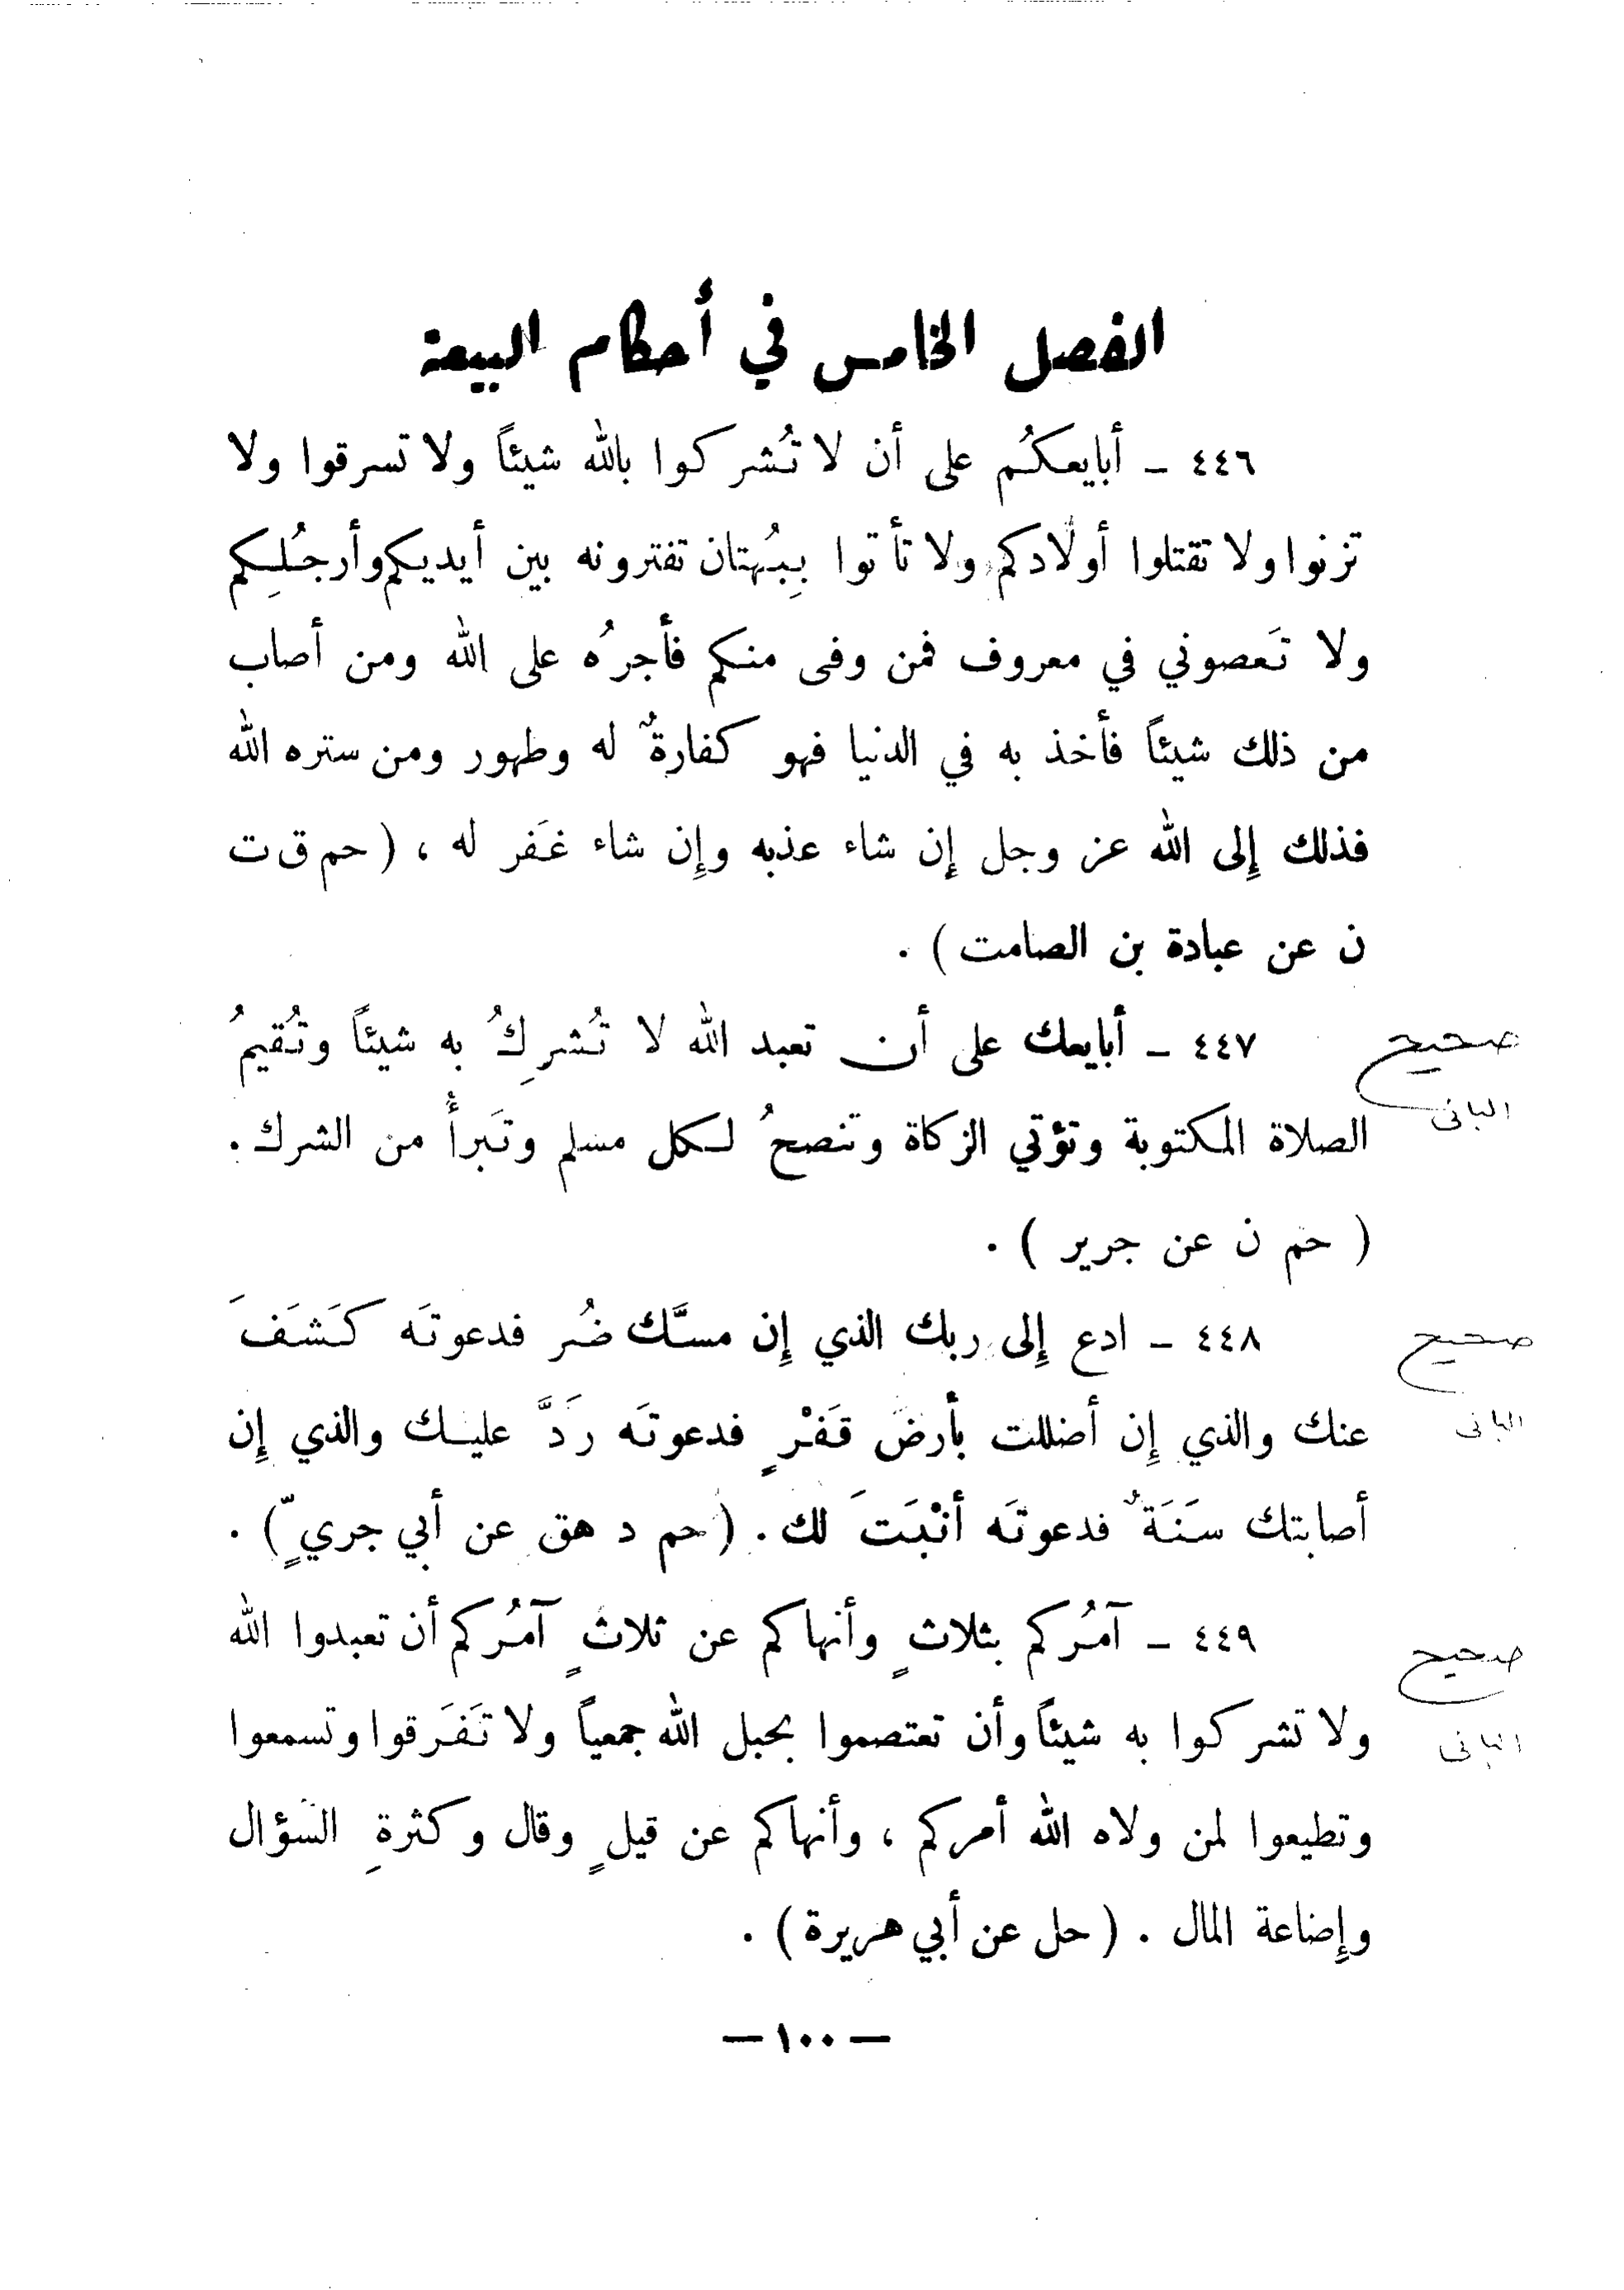 الفصل الخامس في أحكام البيعة
٤٤٦ ـ أبايعكُم على أن لا تُشركوا بالله شيئاً ولا تسرقوا ولا
تزنوا ولا تقتلوا أولادكم ولا تأتوا بِبُهتان تفترونه بين أيديكم وأرجُلِكم
ولا تَعصوني في معروف فمن وفى منكم فأجرُه على الله ومن أصاب
من ذلك شيئاً فأخذ به في الدنيا فهو كفارةٌ له وطهور ومن ستره الله
فذلك إِلى الله عز وجل إِن شاء عذبه وإِن شاء غَفر له ، ( حم ق ت
ن عن عبادة بن الصامت ) .
٤٤٧ ـ أبايعك على أن تعبد الله لا تُشرِكُ به شيئاً وتُقيمُ
صحيح
الصلاة المكتوبة وتؤتي الزكاة وتنصحُ لكل مسلم وتَبرأُ من الشرك .
البانى
( حم ن عن جرير ) .
٤٤٨ ـ ادع إِلى ربك الذي إِن مسَّك ضُر فدعوتَه كَشَفَ
صحيح
عنك والذي إِن أضللت بأرضَ قَفْرٍ فدعوتَه رَدَّ عليك والذي إِن
البانى
أصابتك سَنَةٌ فدعوتَه أنْبَتَ لك . ( حم د هق عن أبي جريٍّ ) .
٤٤٩ ـ آمُركم بثلاثٍ وأنهاكم عن ثلاثٍ آمُركم أن تعبدوا الله
صحيح
ولا تشركوا به شيئاً وأن تعتصموا بحبل الله جمعياً ولا تَفَرقوا وتسمعوا
البانى
وتطيعوا لمن ولاه الله أمركم ، وأنهاكم عن قيلٍ وقال وكثرةِ السؤال
وإِضاعة المال . ( حل عن أبي هريرة ) .
— ١٠٠ —